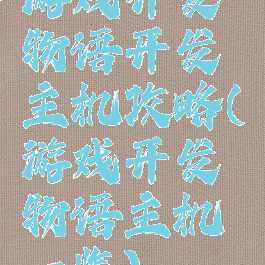 游戏开发
物语开发
主机攻略(
游戏开发
物语主机